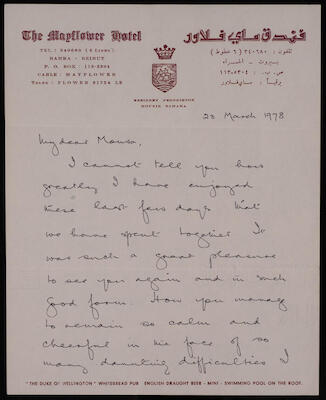 The Mayflower Hotel
TEL: 340680 (6 LINES)
HAMRA - BEIRUT
P. O. BOX : 113-5304
CABLE: MAYFLOWER
TELEX : FLOWER 21734 LE
فندق ماي فلاور
تلفون : ٣٤٠٦٨٠ (٦ خطوط)
بيروت - الحمراء
ص. ب. : ٥٣٠٤-١١٣
برقياً : مايفلاور
RESIDENT PROPRIETOR
MOUNIR SAMAHA
23 March 1978
My dear Mousa,
I cannot tell you how
greatly I have enjoyed
these last few days that
we have spent together. It
was such a great pleasure
to see you again and in such
good form. How you manage
to remain so calm and
cheerful in the face of so
many daunting difficulties I
"THE DUKE OF WELLINGTON" WHITBREAD PUB ENGLISH DRAUGHT BEER - MINI - SWIMMING POOL ON THE ROOF.